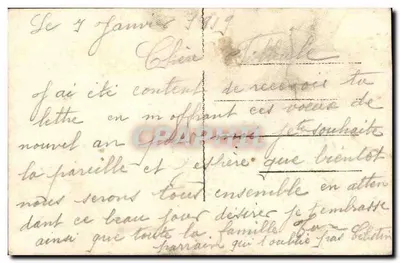 Le 7 Janvier 1919
Chère
J'ai été content de recevois ta
lettre en m'offrant ces voeux de
nouvel an je te souhaite
la pareille et espère que bientot
nous serons tous ensemble en atten
dant ce beau jour désirer je t'embrasse
ainsi que toute la famille
parraine qui t'oublie pas Célestin
CPARAMA